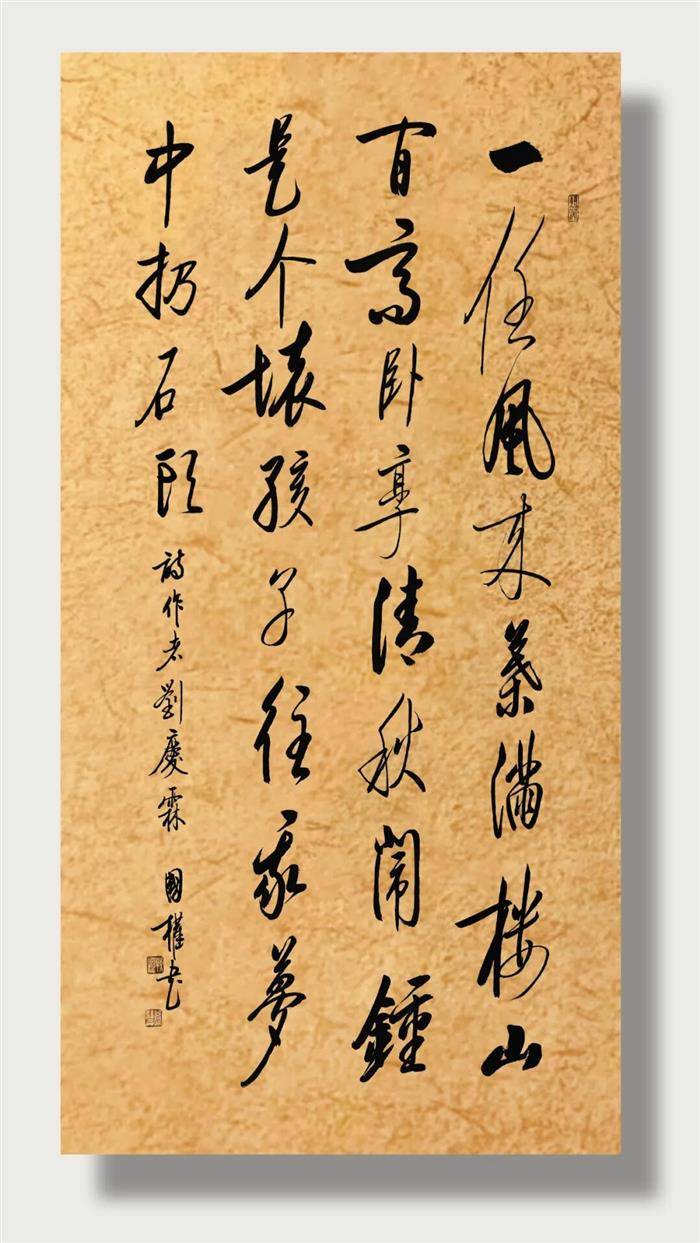 一任風來葉滿樓山
百高卧享清秋鬧鍾
是个壞孩子往我夢
中扔石頭
詩作者劉慶霖 國權书